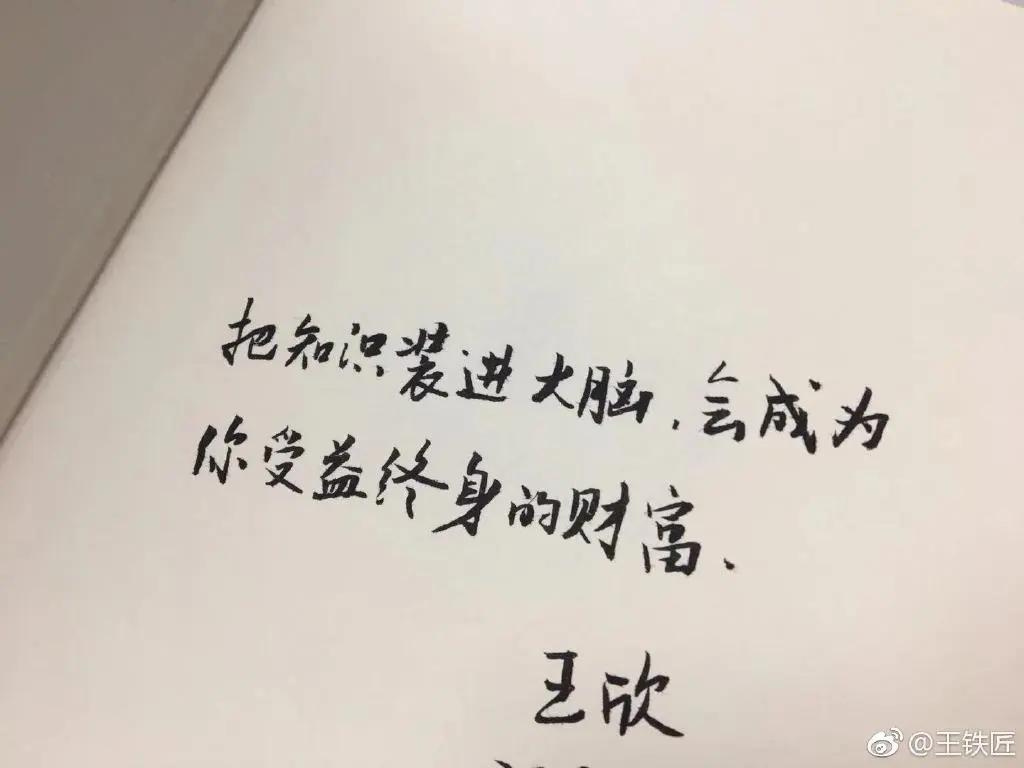 把知识装进大脑,会成为
你受益终身的财富.
王欣
@王铁匠